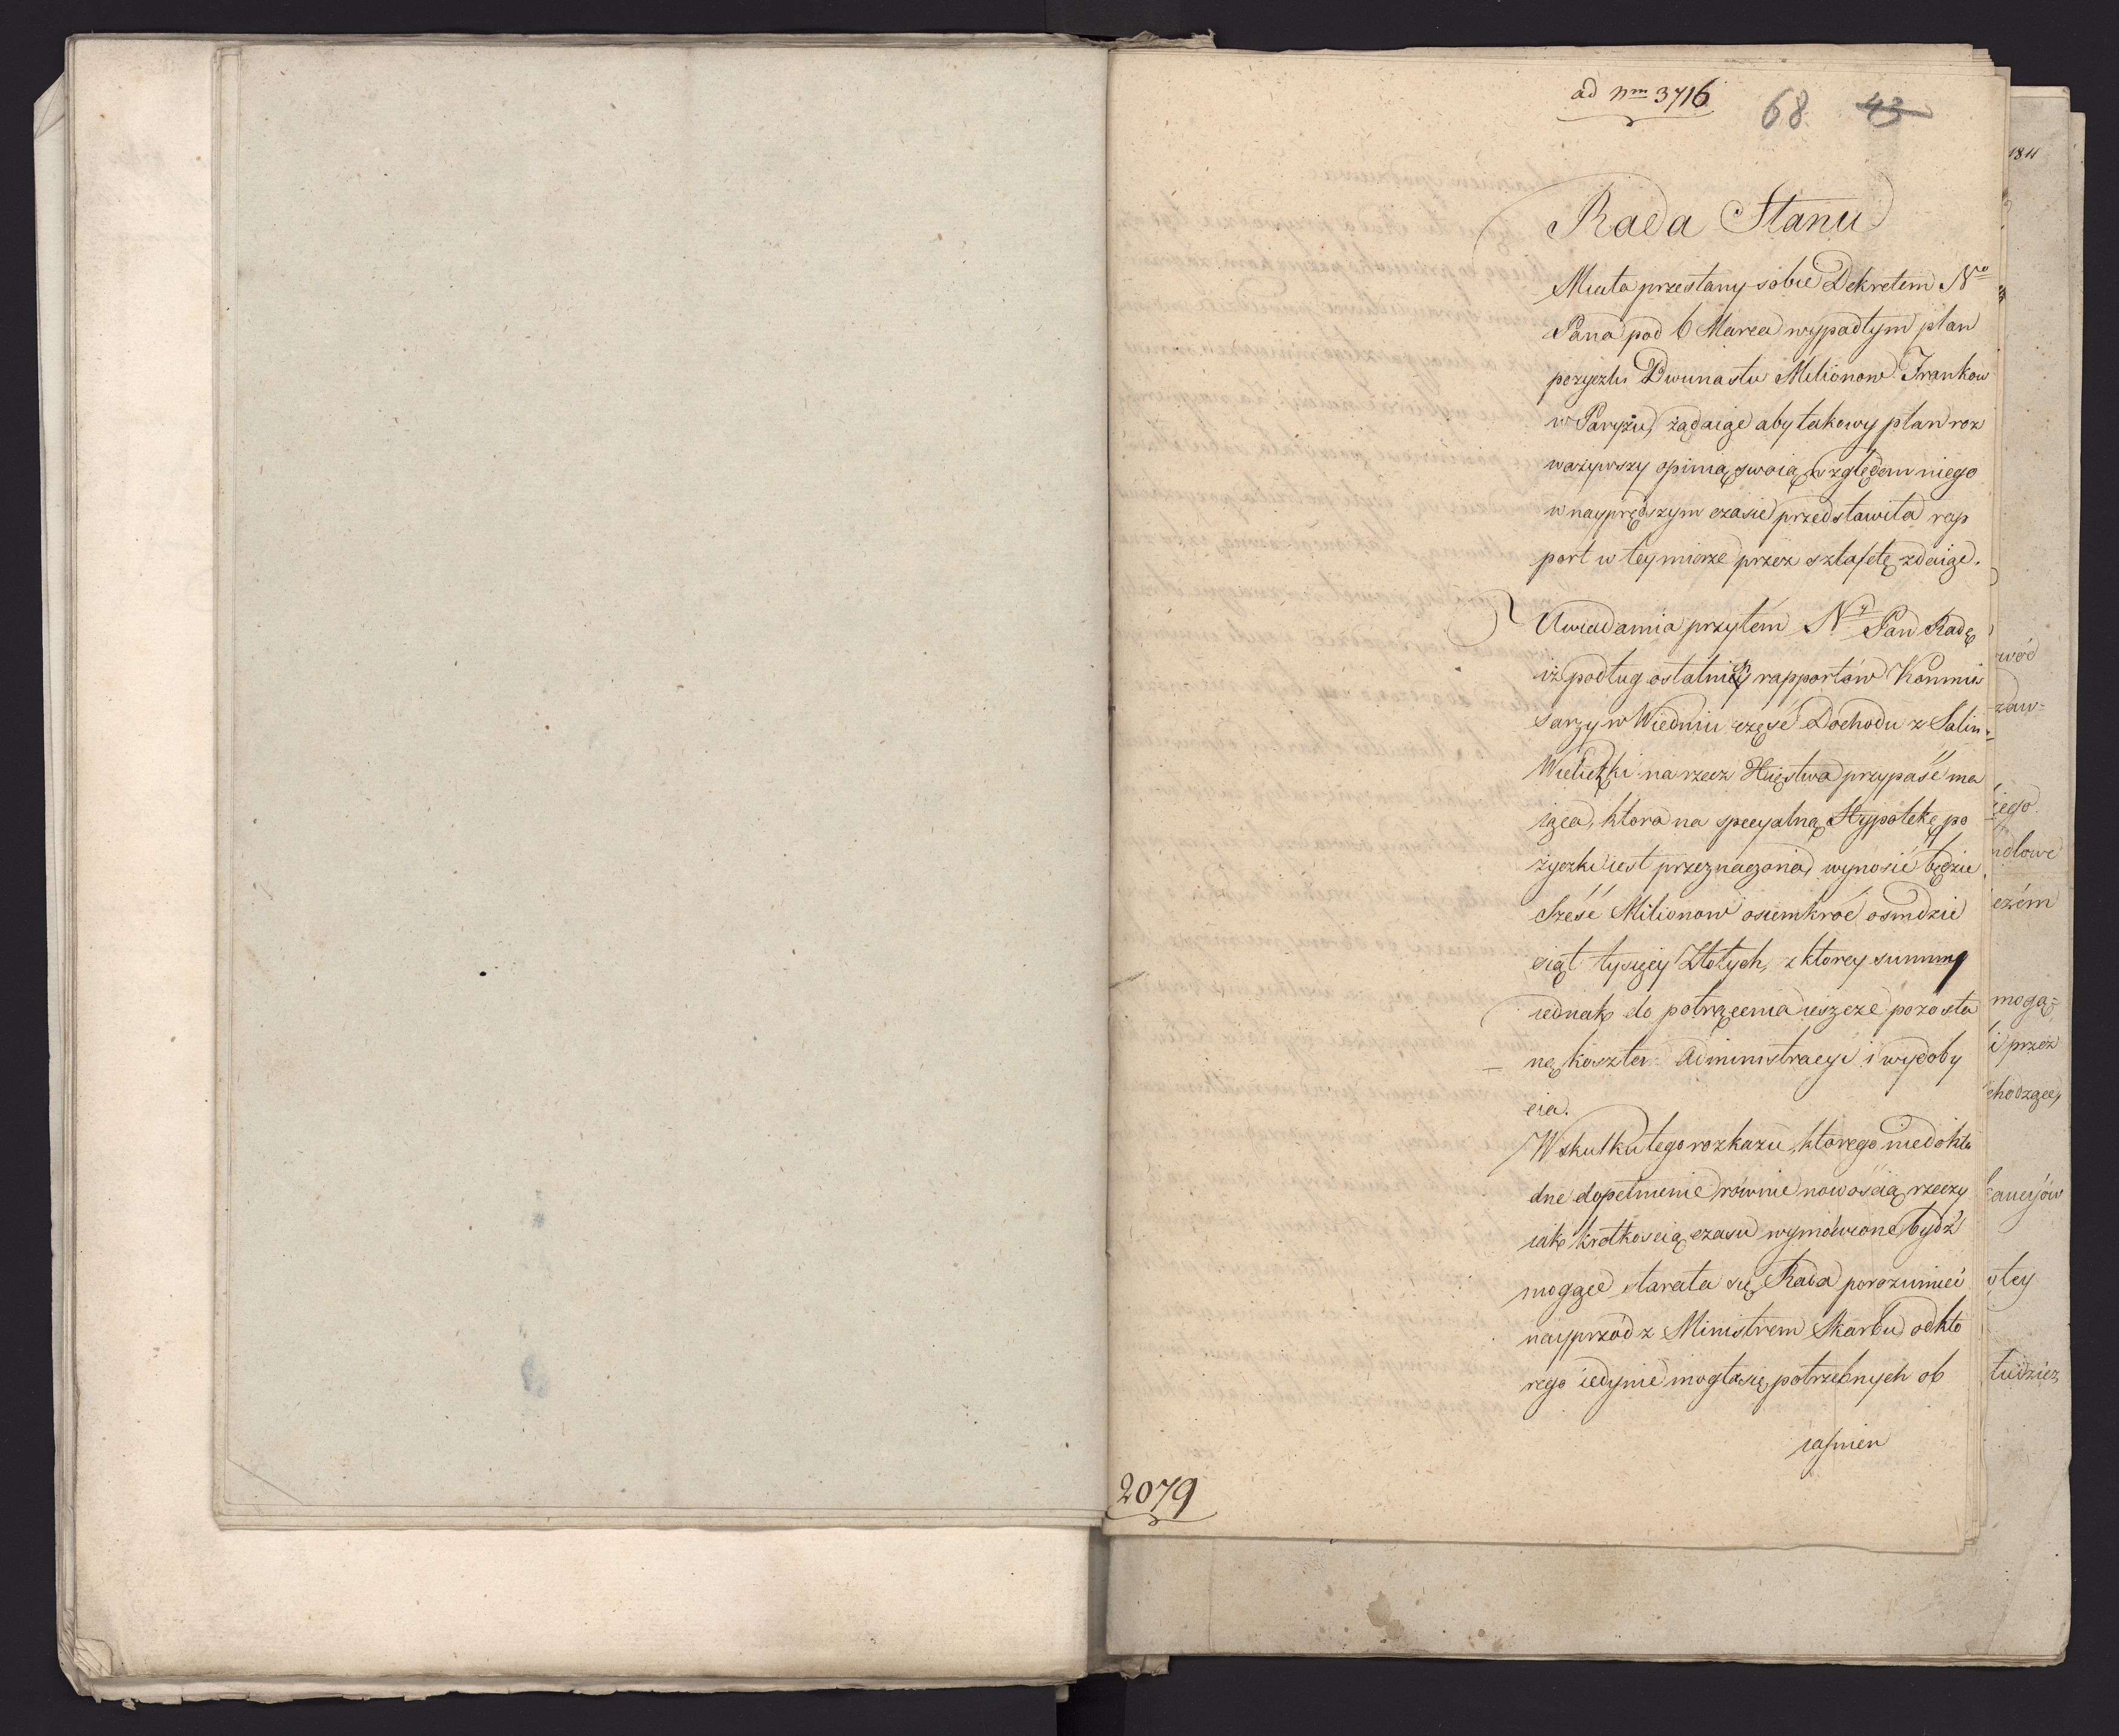 ad nm 3716
68 43
Rada Stanu
Miała przesłany sobie Dekretem No
Pana pod 6 Marca wypadłym plan
pożyczki Dwunastu Milionow Frankow
w Paryżu, żądaiąc aby takowy plan roz
ważywszy opinią swoią względem niego
w nayprędszym czasie przedstawiła rap
port w tey mierze przez sztafetę zdaiąc.
Uwiadamia przytém Ny Pan Radę
iż podług ostatnich rapportów Kommis
sarzy w Wiedniu część Dochodu z Salin
Wieliczki na rzecz Xięstwa przypaść ma
iąca, ktora na specyalną Hypotekę po
życzki iest przeznaczona, wynosić będzie
Sześć Milionow osiemkroć osmdzie
siąt tysięcy Złotych, z ktorey summy
iednak do potrącenia ieszcze pozosta
ną koszta Administracyi i wydoby
cia.
W skutku tego rozkazu, ktorego niedokła
dne dopełnienie równie nowością rzeczy
iak krotkoscią czasu wymówione bydź
mogące starała się Rada porozumieć
nayprzód z Ministrem Skarbu od kto
rego iedynie mogła się potrzebnych ob
iasnien
2079
1811
wód
zaw=
iego
ndlowe
czém
mogą=
i przez
chodzące,
kaucyów
otey
tudzież